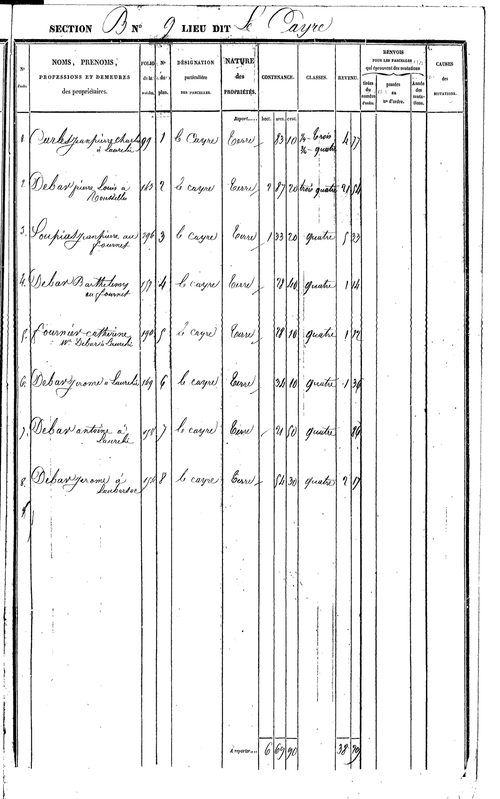 SECTION B N° 9 LIEU DIT Le Cayre
N° d'ordre NOMS, PRENOMS, PROFESSIONS ET DEMEURES des propriétaires. FOLIO de la N° du plan. DÉSIGNATION particulière DES PARCELLES. NATURE des PROPRIÉTÉS. CONTENANCE. CLASSES. REVENU. RENVOIS POUR LES PARCELLES qui éprouvent des mutations CAUSES des MUTATIONS.
tirées du numéro d'ordre. passées au n° d'ordre. Année des mutations.
Report.... hect. ares. cent.
1. jean pierre Charles 99 1 le Cayre Terre 83 10 trois 4 77
à quatre
2. Debar pierre Louis à 163 2 le cayre Terre 2 87 20 trois quatre 21 54
3. Loupias jean pierre au 296 3 le cayre Terre 1 33 20 quatre 5 33
fournet
4. Debar Barthelemy 157 4 le cayre Terre 28 40 quatre 1 14
au fournet
5. fournier catherine 190 5 le cayre Terre 28 10 quatre 1 12
Debar à
6. Debar Jerome à 169 6 le cayre Terre 34 10 quatre 1 36
7. Debar antoine à 7 le cayre Terre 21 50 quatre 86
8. Debar Jerome à 8 le cayre Terre 54 30 quatre 2 17
9.
A reporter.... 6 69 90 38 29